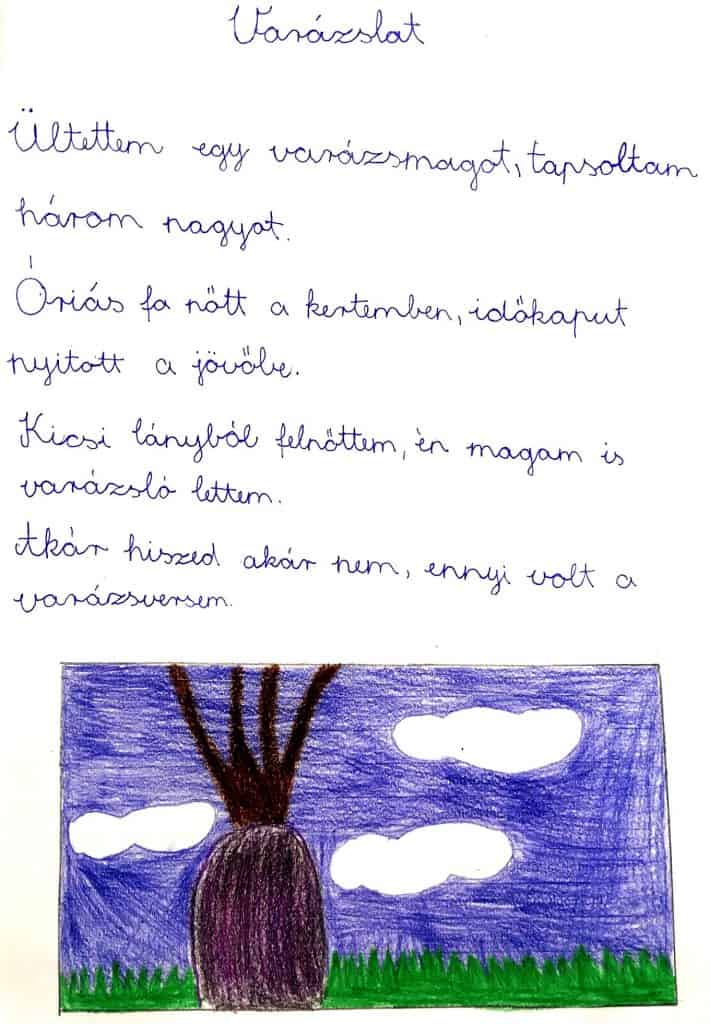 Varázslat
Ültettem egy varázsmagot, tapsoltam
három nagyot.
Óriás fa nőtt a kertemben, időkaput
nyitott a jövőbe.
Kicsi lányból felnőttem, én magam is
varázsló lettem.
Akár hiszed akár nem, ennyi volt a
varázsversem.